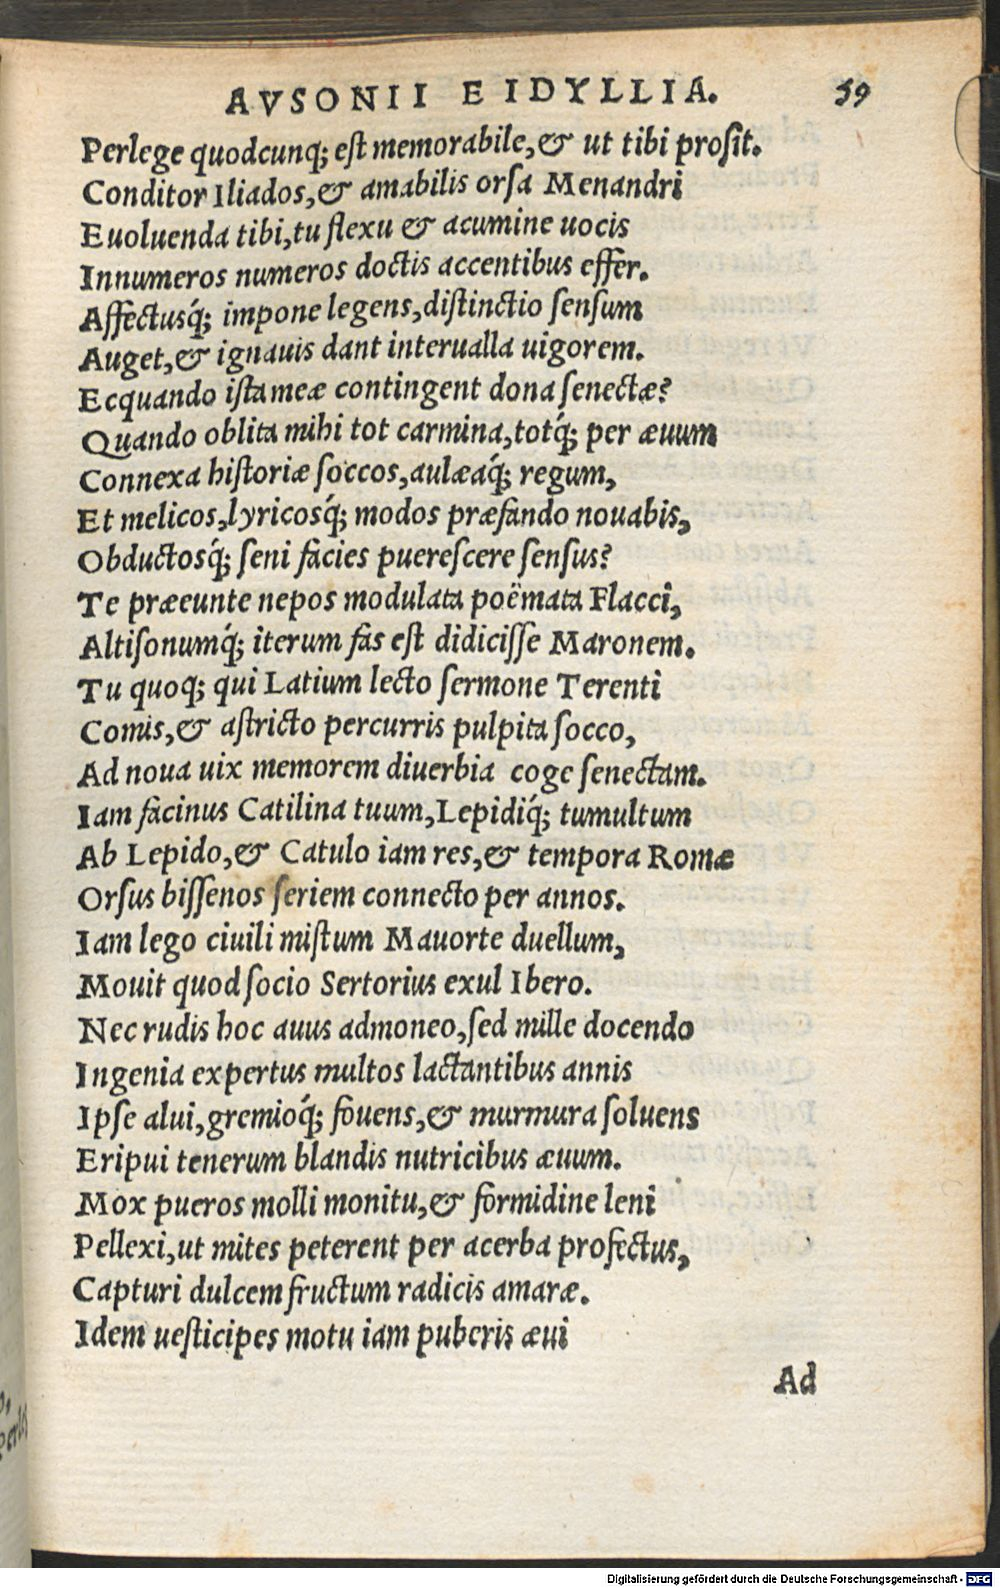 AVSONII EIDYLLIA. 59
Perlege quodcunq; est memorabile, & ut tibi prosit.
Conditor Iliados, & amabilis orsa Menandri
Euoluenda tibi, tu flexu & acumine uocis
Innumeros numeros doctis accentibus effer.
Affectusq́; impone legens, distinctio sensum
Auget, & ignauis dant interualla uigorem.
Ecquando ista meæ contingent dona senectæ?
Quando oblita mihi tot carmina, totq́; per æuum
Connexa historiæ soccos, aulæaq́; regum,
Et melicos, lyricosq́; modos præfando nouabis,
Obductosq́; seni facies puerescere sensus?
Te præeunte nepos modulata poëmata Flacci,
Altisonumq́; iterum fas est didicisse Maronem.
Tu quoq; qui Latium lecto sermone Terenti
Comis, & astricto percurris pulpita socco,
Ad noua uix memorem diuerbia coge senectam.
Iam facinus Catilina tuum, Lepidiq́; tumultum
Ab Lepido, & Catulo iam res, & tempora Romæ
Orsus bissenos seriem connecto per annos.
Iam lego ciuili mistum Mauorte duellum,
Mouit quod socio Sertorius exul Ibero.
Nec rudis hoc auus admoneo, sed mille docendo
Ingenia expertus multos lactantibus annis
Ipse alui, gremioq́; fouens, & murmura soluens
Eripui tenerum blandis nutricibus æuum.
Mox pueros molli monitu, & formidine leni
Pellexi, ut mites peterent per acerba profectus,
Capturi dulcem fructum radicis amaræ.
Idem uesticipes motu iam puberis æui
Ad
Digitalisierung gefördert durch die Deutsche Forschungsgemeinschaft - DFG